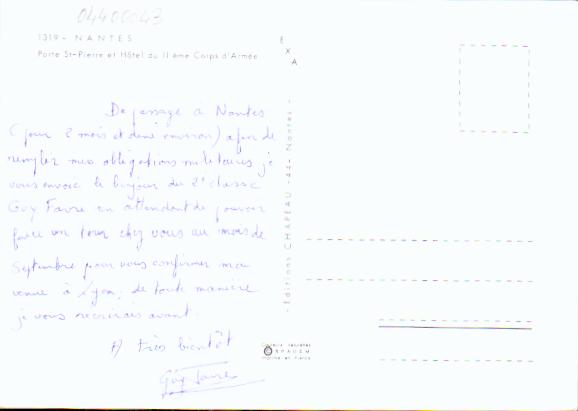 04400043
1319 - NANTES
Porte St-Pierre et Hôtel du 11 ème Corps d'Armée
EXA
De passage à Nantes
(pour 2 mois et demi environ) afin de
remplir mes obligations militaires je
vous envoie le bonjour du 2e classe
Guy Favre en attendant de pouvoir
faire un tour chez vous au mois de
Septembre pour vous confirmer ma
venue à Lyon; de toute manière
je vous recrirais avant.
A très bientôt
Guy Favre
- Éditions CHAPEAU -44- Nantes -
Couleurs naturelles
SPADEM
Imprimé en France